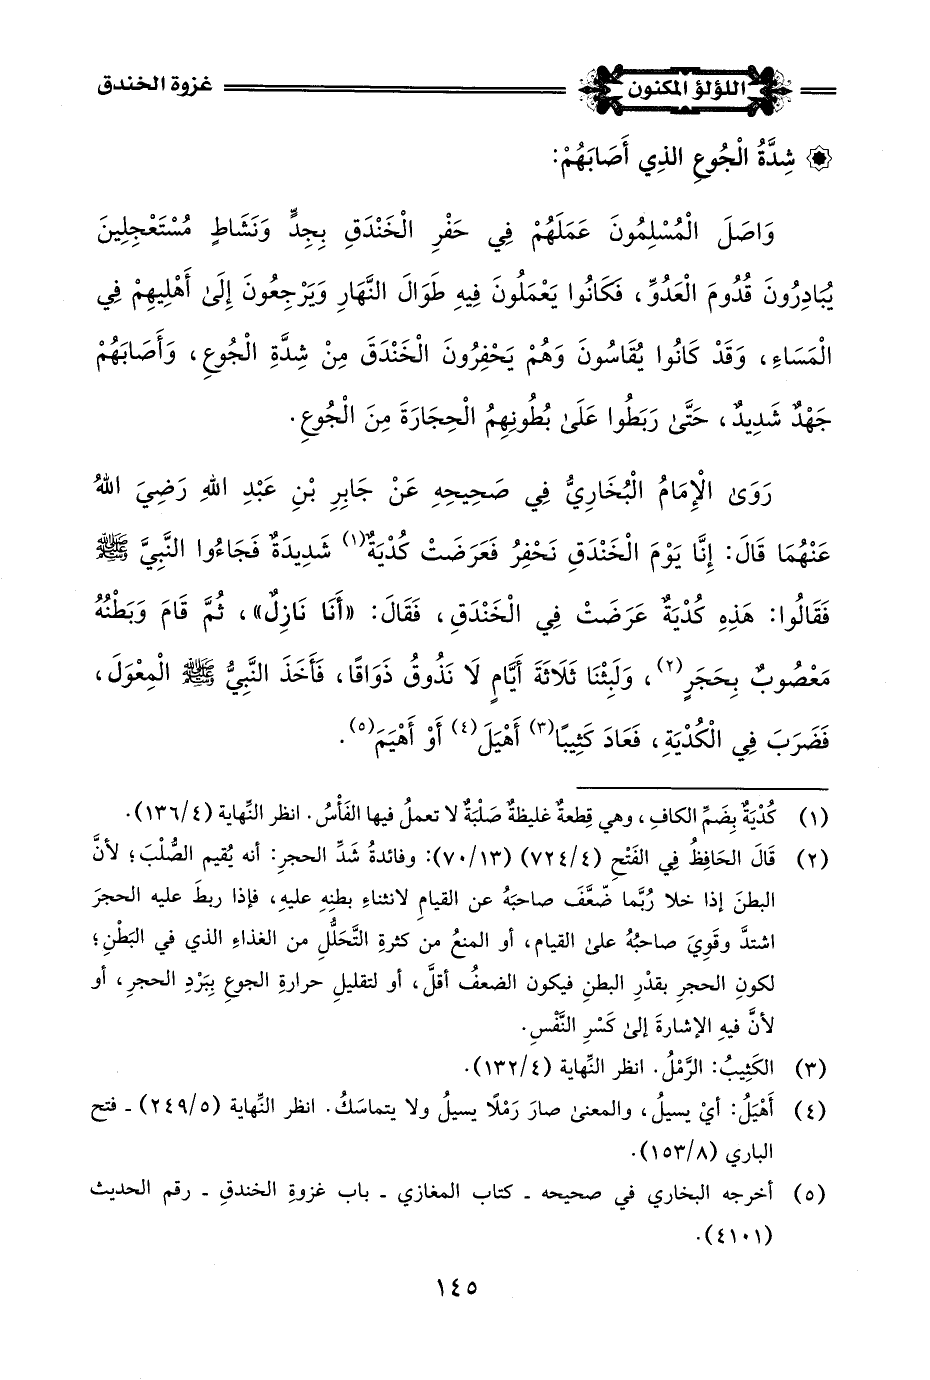 اللؤلؤ المكنون
غزوة الخندق
شِدَّةُ الْجُوعِ الذِي أَصَابَهُمْ:
وَاصَلَ الْمُسْلِمُونَ عَمَلَهُمْ فِي حَفْرِ الْخَنْدَقِ بِجِدٍّ وَنَشَاطٍ مُسْتَعْجِلِينَ
يُبَادِرُونَ قُدُومَ الْعَدُوِّ، فَكَانُوا يَعْمَلُونَ فِيهِ طَوَالَ النَّهَارِ وَيَرْجِعُونَ إِلَىٰ أَهْلِيهِمْ فِي
الْمَسَاءِ، وَقَدْ كَانُوا يُقَاسُونَ وَهُمْ يَحْفِرُونَ الْخَنْدَقَ مِنْ شِدَّةِ الْجُوعِ، وَأَصَابَهُمْ
جَهْدٌ شَدِيدٌ، حَتَّىٰ رَبَطُوا عَلَىٰ بُطُونِهِمُ الْحِجَارَةَ مِنَ الْجُوعِ.
رَوَىٰ الْإِمَامُ الْبُخَارِيُّ فِي صَحِيحِهِ عَنْ جَابِرِ بْنِ عَبْدِ اللهِ رَضِيَ اللهُ
عَنْهُمَا قَالَ: إِنَّا يَوْمَ الْخَنْدَقِ نَحْفِرُ فَعَرَضَتْ كُدْيَةٌ(١) شَدِيدَةٌ فَجَاءُوا النَّبِيَّ ﷺ
فَقَالُوا: هَذِهِ كُدْيَةٌ عَرَضَتْ فِي الْخَنْدَقِ، فَقَالَ: «أَنَا نَازِلٌ»، ثُمَّ قَامَ وَبَطْنُهُ
مَعْصُوبٌ بِحَجَرٍ(٢)، وَلَبِثْنَا ثَلَاثَةَ أَيَّامٍ لَا نَذُوقُ ذَوَاقًا، فَأَخَذَ النَّبِيُّ ﷺ الْمِعْوَلَ،
فَضَرَبَ فِي الْكُدْيَةِ، فَعَادَ كَثِيبًا(٣) أَهْيَلَ(٤) أَوْ أَهْيَمَ(٥).
(١) كُدْيَةٌ بِضَمِّ الكافِ، وهي قِطعةٌ غليظةٌ صَلْبَةٌ لا تعملُ فيها الفَأْسُ. انظر النِّهاية (١٣٦/٤).
(٢) قَالَ الحَافِظُ فِي الفَتْحِ (٧٢٤/٤) (٧٠/١٣): وفائدةُ شَدِّ الحجرِ: أنه يُقيم الصُّلْبَ؛ لأنَّ
البطنَ إذا خلا رُبَّما ضَّعَّفَ صاحبَهُ عن القيامِ لانثناءِ بطنِهِ عليهِ، فإذا ربطَ عليه الحجرَ
اشتدَّ وقَوِيَ صاحبُهُ علىٰ القيام، أو المنعُ من كثرةِ التَّحَلُّلِ من الغذاءِ الذي في البَطْنِ؛
لكونِ الحجرِ بقدْرِ البطنِ فيكون الضعفُ أقلَّ، أو لتقليلِ حرارةِ الجوعِ بِبَرْدِ الحجرِ، أو
لأنَّ فيهِ الإشارةَ إلىٰ كَسْرِ النَّفْسِ.
(٣) الكَثِيبُ: الرَّمْلُ. انظر النِّهاية (١٣٢/٤).
(٤) أَهْيَلُ: أيْ يسيلُ، والمعنىٰ صارَ رَمْلًا يسيلُ ولا يتماسَكُ. انظر النِّهاية (٢٤٩/٥) ـ فتح
الباري (١٥٣/٨).
(٥) أخرجه البخاري في صحيحه ـ كتاب المغازي ـ باب غزوةِ الخندقِ ـ رقم الحديث
(٤١٠١).
١٤٥